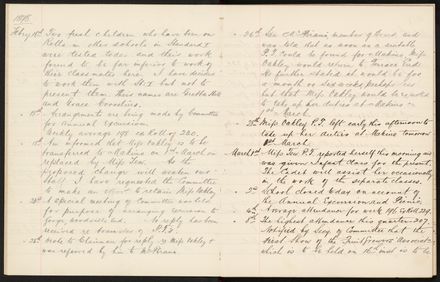 1898.
Feby 14th Two fresh children who have been on
Rolls in other schools in Standard I
were tested today and their work
found to be far inferior to work of
their classmates here. I have decided
to work them with Std I but not to
present them. Their names are
and Grace
Arrangements are being made by Committee
for Annual Excursion.
Weekly average 198 on Roll of 220.
Am informed that Miss Oakley is to be
transferred to Makino on 1st March
replaced by Miss Tew. As the
proposed change will weaken our
staff I have requested the Committee
to make an effort to retain Miss Oakley
A special meeting of Committee was held
for purpose of arranging excursion to
No reply has been
received re transfer of P.T's.
Wrote to Chairman for reply re Miss Oakley &
was referred by him to
26th See member of Board and
was told that as soon as a suitable
P.T. could be found for Makino Miss
Oakley would return to
He further stated it would be for
a month or six weeks perhaps less
but that Miss Oakley would be required
to take up her duties at Makino on
1st March.
28th Miss Oakley P.T. left early this afternoon to
take up her duties at Makino tomorrow
1st March.
March 1st Miss Tew P.T. reported herself this morning and
was given Infant Class for the present.
The Cadet will assist her occasionally
in the work of the separate classes.
School closed today on account of
the Annual Excursion and Picnic.
4th Average attendance for week 196 Roll 224.
8th The highest attendance this quarter 207.
Notified by Secy of Committee that the
Great Show of the Fruitgrowers Association
which is to be held on the inst is to be